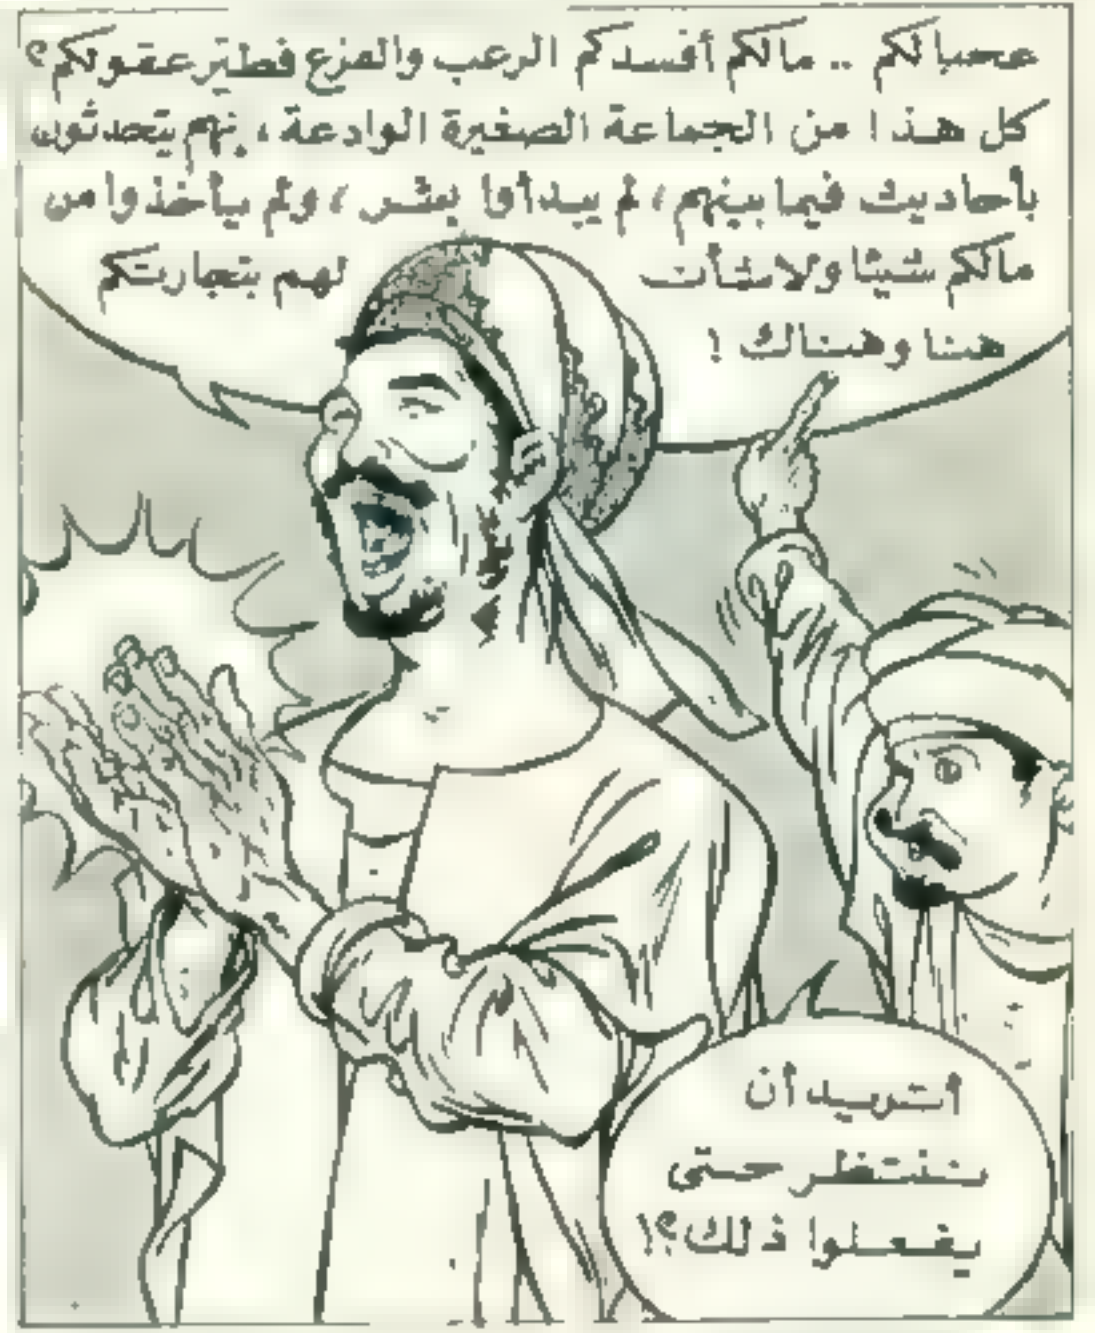 عجبا لكم .. مالكم أفسدكم الرعب والفزع فطير عقولكم؟
كل هذا من الجماعة الصغيرة الوادعة، إنهم يتحدثون
بأحاديث فيما بينهم، لم يبدأوا بشر، ولم يأخذوا من
مالكم شيئا ولا شأن لهم بتجارتكم
هنا وهناك !
أتريد أن
ننتظر حتى
يفعلوا ذلك؟!